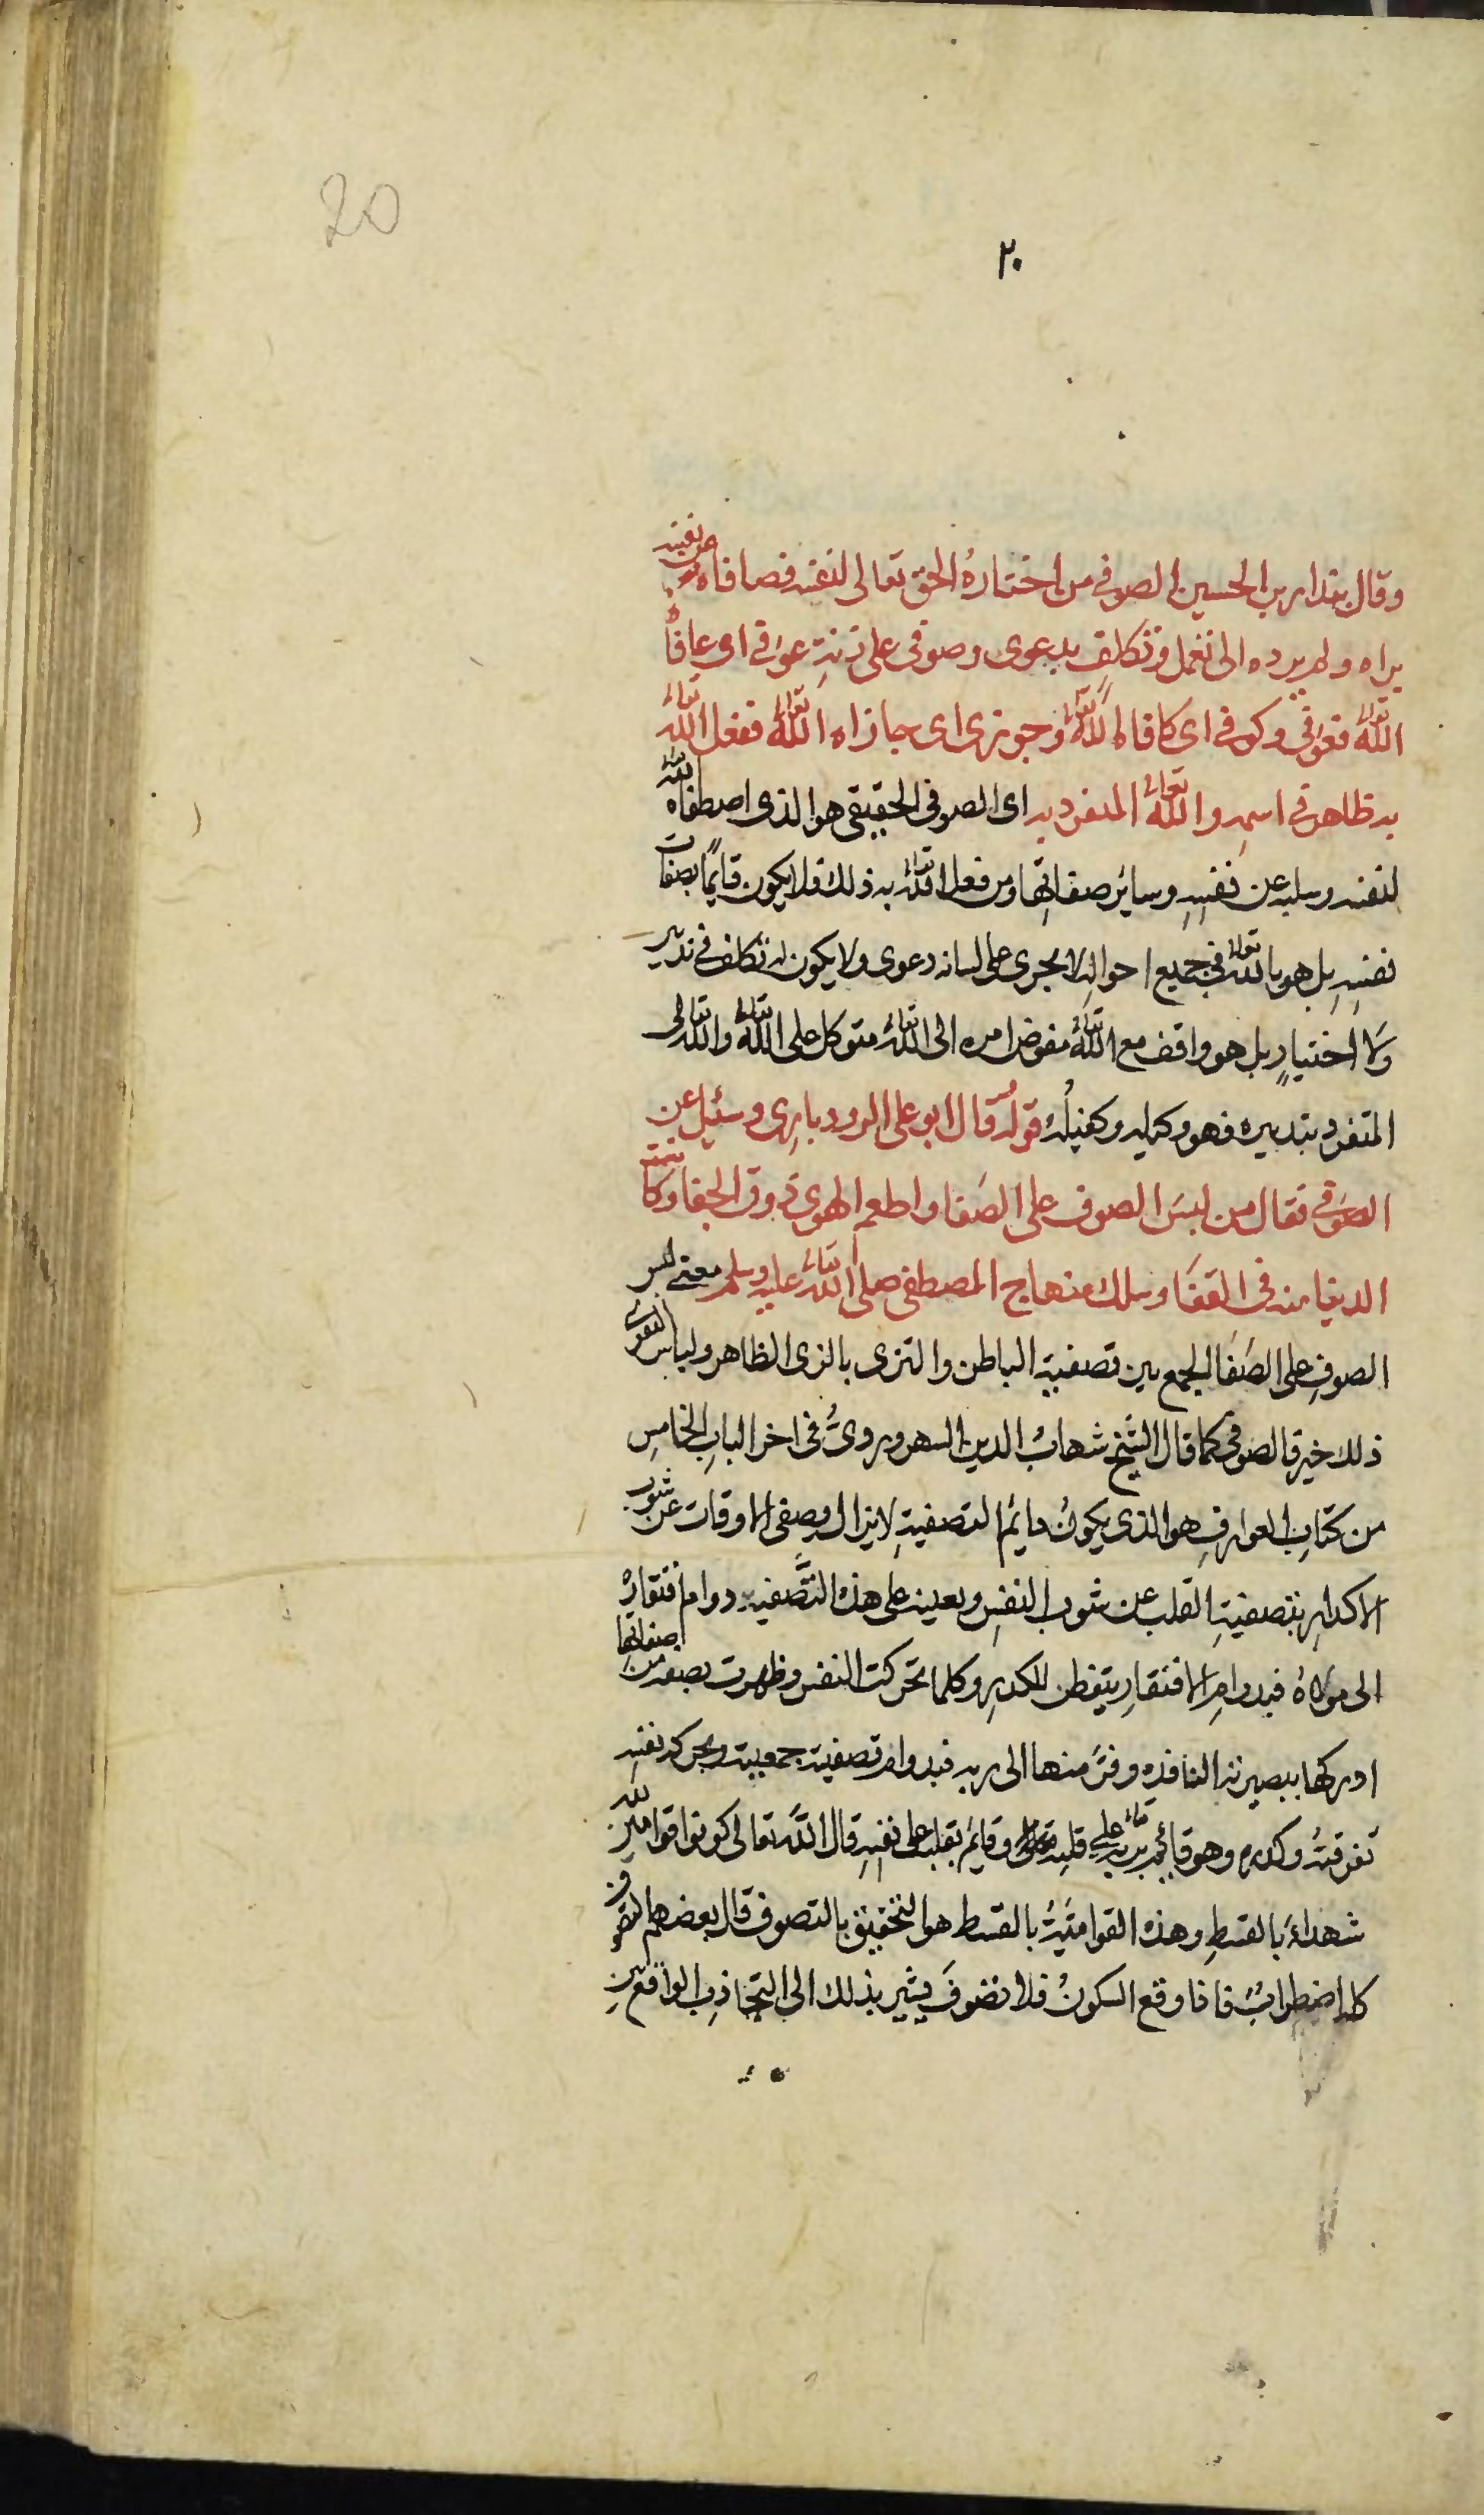 20
٢٠
وقال بندار بن الحسين الصوفي من اختاره الحق تعالى لنفسه فصافاه وعن نفسه
براه ولم يرده الى تعمل وتكلف بدعوى وصوفي على زنة عوفي اى عافاه
الله تعالى فعوفي وكوفي اى كافاه الله تعالى وجوزى اى جازاه الله تعالى ففعل الله تعالى
به ظاهر في اسمه والله تعالى المتفرد به اى الصوفي الحقيقي هو الذى اصطفاه الله
لنفسه وسلبه عن نفسه وسائر صفاتها ومن فعل الله تعالى به ذلك فلا يكون قايمًا بصفات
نفسه بل هو بالله تعالى في جميع احواله لا يجرى على لسانه دعوى ولا يكون له تكلف في تدبير
ولا اختيارٍ بل هو واقف مع الله تعالى مفوض امره الى الله تعالى متوكل على الله تعالى والله تعالى
المتفرد بتدبيره فهو وكيله وكفيله قوله قال ابو على الرودبارى وسئل عن
الصوفي فقال من لبس الصوف على الصفا واطعم الهوى ذوق الجفا وكانت
الدنيا منه في القفا وسلك منهاج المصطفى صلى الله تعالى عليه وسلم معنى لبس
الصوف على الصفا الجمع بين تصفية الباطن والتزى بالزى الظاهر ولباس التقوى
ذلك خير فالصوفي كما قال الشيخ شهاب الدين السهروردى في اخر الباب الخامس
من كتاب العوارف هو الذى يكون دايم التصفية لا يزال يصفى الاوقات عن شوب
الاكدار بتصفية القلب عن شوب النفس ويعينه على هذه التصفية دوام افتقاره
الى مولاه فبدوام الافتقار يتفطن للكدر وكلما تحركت النفس وظهرت بصفة من صفاتها
ادركها ببصيرته النافذه وفرّ منها الى ربه فبدوام تصفيته جمعيته وبحركة نفسه
تفرقته وكدره وهو قائم بربه تعالى على قلبه وقايم بقلبه على نفسه قال الله تعالى كونوا قوامين لله
شهداء بالقسط وهذه القوامية بالقسط هو التحقيق بالتصوف قال بعضهم التصوف
كله اضطراب فاذا وقع السكون فلا تصوف يشير بذلك الى التجاذب الواقع بين